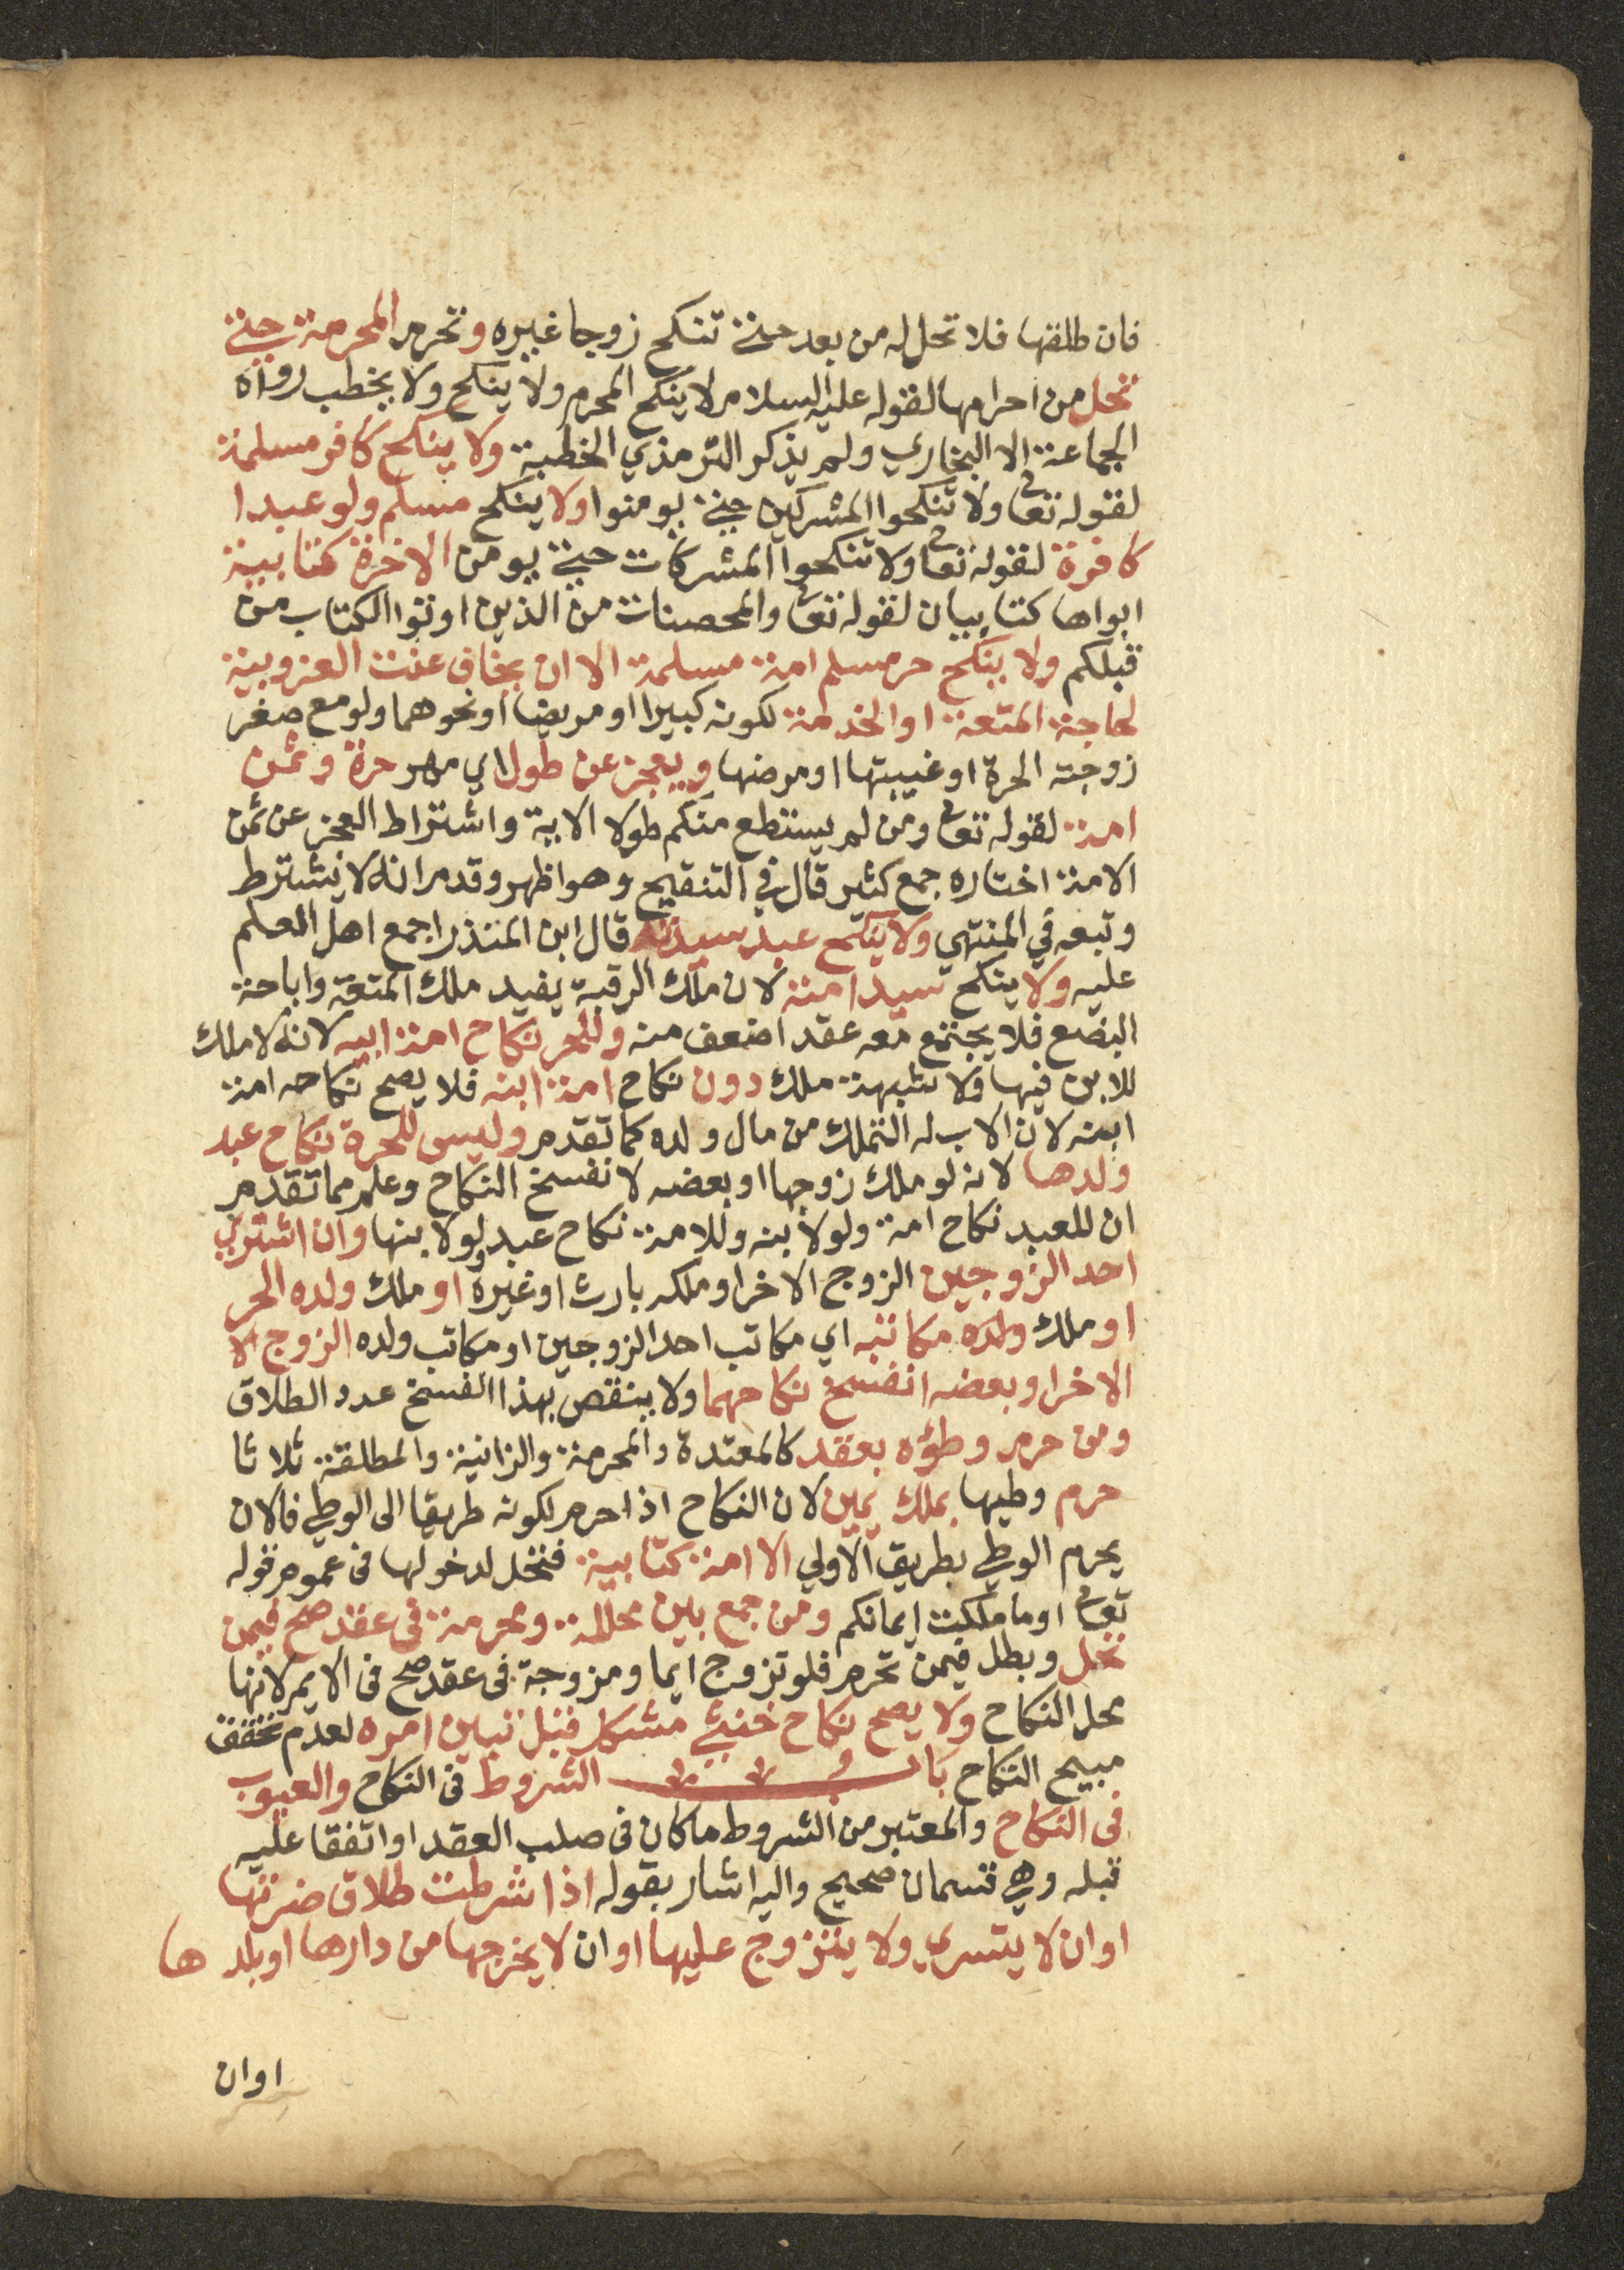 فان طلقها فلا تحل له من بعد حتى تنكح زوجا غيره وتحرم المحرمة حتى
تحل من احرامها لقوله عليه السلام لا ينكح المحرم ولا ينكح ولا يخطب رواه
الجماعة الا البخاري ولم يذكر الترمذي الخطبة ولا ينكح كافر مسلمة
لقوله تعا ولا تنكحوا المشركين حتى يومنوا ولا ينكح مسلم ولو عبدا
كافرة لقوله تعا ولا تنكحوا المشركات حتى يومن الا حرة كتابية
ابواها كتابيان لقوله تعا والمحصنات من الذين اوتوا الكتاب من
قبلكم ولا ينكح حر مسلم امة مسلمة الا ان يخاف عنت العزوبية
لحاجة المتعة او الخدمة لكونه كبيرا او مريضا او نحوهما ولو مع صغر
زوجته الحرة او غيبتها او مرضها ويعجز عن طول اي مهر حرة وثمن
امة لقوله تعا ومن لم يستطع منكم طولا الاية واشتراط العجز عن ثمن
الامة اختاره جمع كثير قال في التنقيح وهو اظهر وقدم انه لا يشترط
وتبعه في المنتهي ولا ينكح عبد سيدته قال ابن المنذر اجمع اهل العلم
عليه ولا ينكح سيد امته لان ملك الرقبة يفيد ملك المتعة واباحة
البضع فلا يجتمع معه عقد اضعف منه وللحر نكاح امة ابيه لانه لا ملك
للابن فيها ولا شبهة ملك دون نكاح امة ابنه فلا يصح نكاحه امة
ابنه لان الاب له التملك من مال ولده كما تقدم وليس للحرة نكاح عبد
ولدها لانه لو ملك زوجها او بعضه لا نفسخ النكاح وعلم مما تقدم
ان للعبد نكاح امة ولو لابنه وللامة نكاح عبد ولو لابنها وان اشتري
احد الزوجين الزوج الاخر او ملكه بارث او غيره او ملك ولده الحر
او ملك ولده مكاتبه اي مكاتب احد الزوجين او مكاتب ولده الزوج الا
الاخر او بعضه انفسخ نكاحهما ولا ينقص بهذا الفسخ عدد الطلاق
ومن حرم وطؤه بعقد كالمعتدة والمحرمة والزانية والمطلقة ثلاثا
حرم وطيها بملك يمين لان النكاح اذا حرم لكونه طريقا الى الوطي فلان
يحرم الوطي بطريق الاولي الا امة كتابية فتحل لدخولها فى عموم قوله
تعا او ما ملكت ايمانكم ومن جمع بين محللة ومحرمة فى عقد صح فيمن
تحل وبطل فيمن تحرم فلو تزوج ايما ومزوجة فى عقد صح فى الايم لانها
محل النكاح ولا يصح نكاح خنثي مشكل قبل تبين امره لعدم تحقق
مبيح النكاح باب الشروط فى النكاح والعيوب
فى النكاح والمعتبر من الشروط ما كان فى صلب العقد او اتفقا عليه
قبله وهي قسمان صحيح واليه اشار بقوله اذا شرطت طلاق ضرتها
او ان لا يتسري ولا يتزوج عليها او ان لا يخرجها من دارها او بلدها
او ان